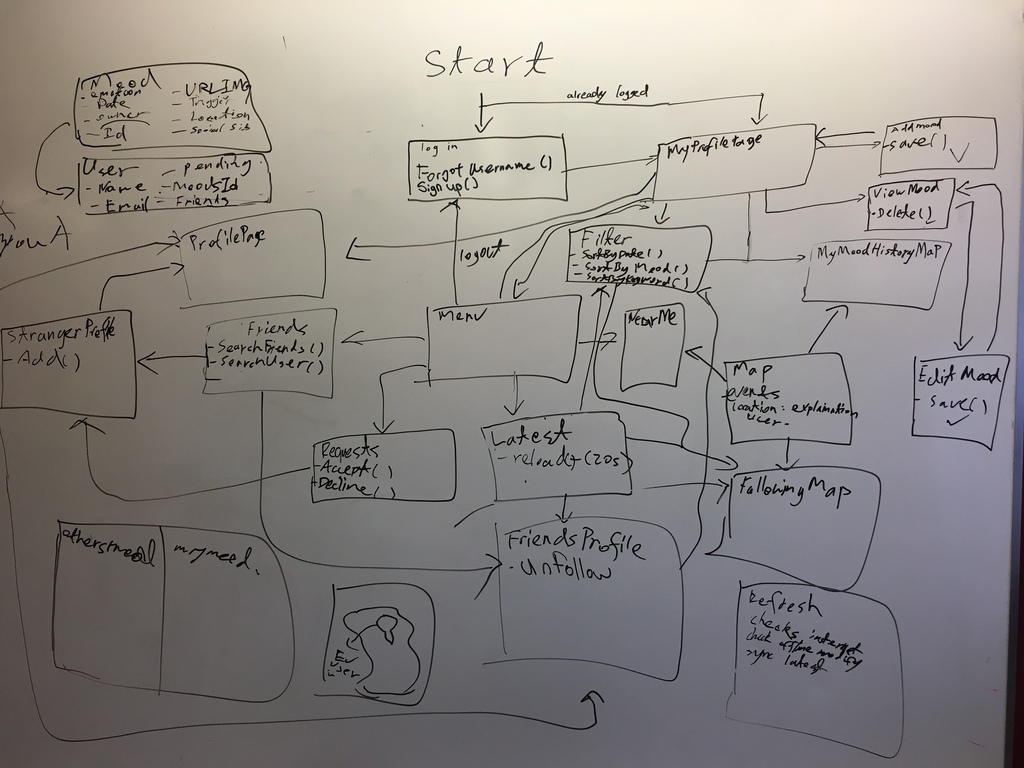 Start
already logged
Mood
- emotion
- Date
- owner
- Id
- URLIMG
- Trigger
- Location
- Social sit
User
- Name
- Email
- pending
- MoodsId
- Friends
log in
Forgot Username()
Sign up()
MyProfilePage
Add mood
- save()
ViewMood
- Delete()
ProfilePage
logout
Filter
- SortByDate()
- SortBy Mood()
- SortByKeyword()
MyMoodHistoryMap
StrangerProfile
- Add()
Friends
- SearchFriends()
- SearchUser()
-
Menu
NearMe
Map
events
location: explaination
user.
Edit Mood
- save()
Requests
- Accept()
- Decline()
Latest
- reload+(20s)
FollowingMap
FriendsProfile
- unfollow
othersmood
mymood.
user
Refresh
checks
sync latest